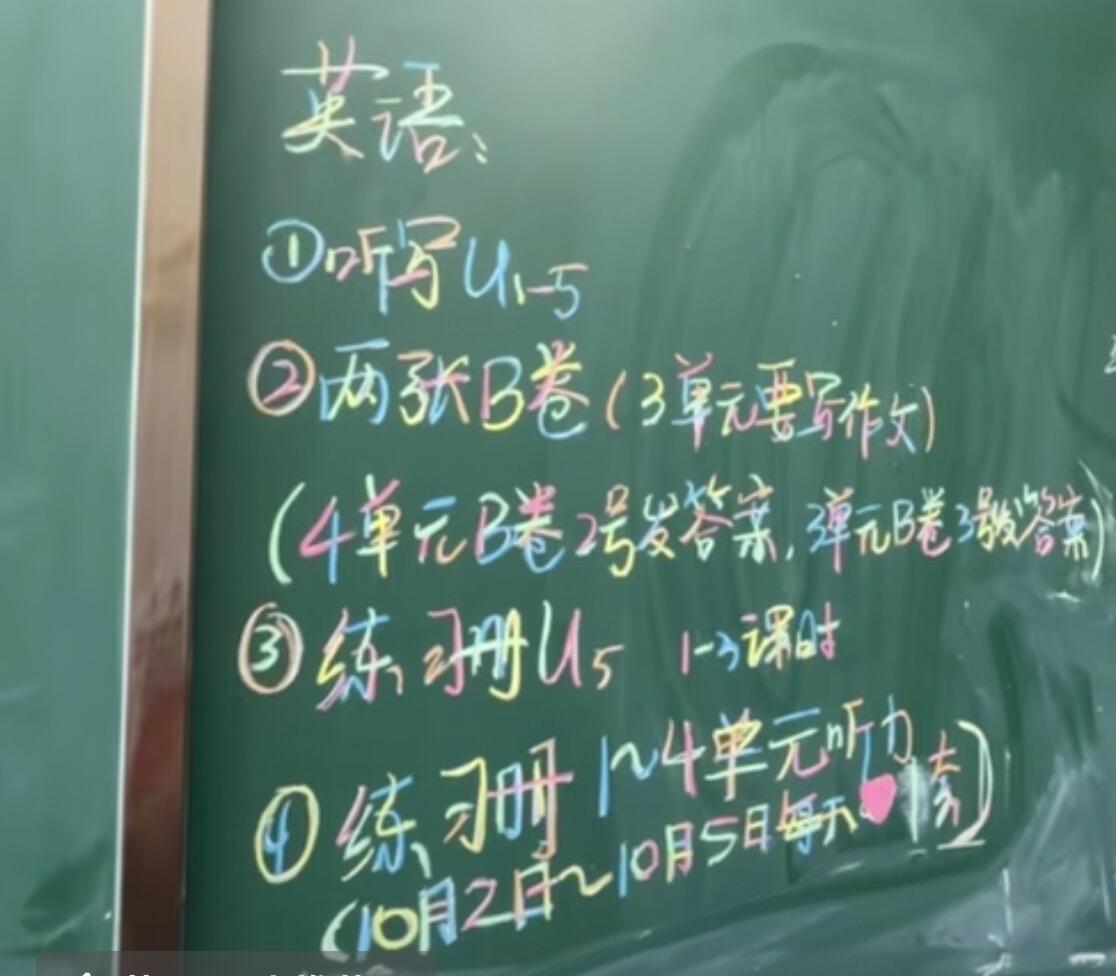 英语:
①听写U1-5
②两张B卷(3单元要写作文)
(4单元B卷2号发答案,3单元B卷3号发答案)
③练习册U5 1-3课时
④练习册1~4单元听力
(10月2日~10月5日每天1套)